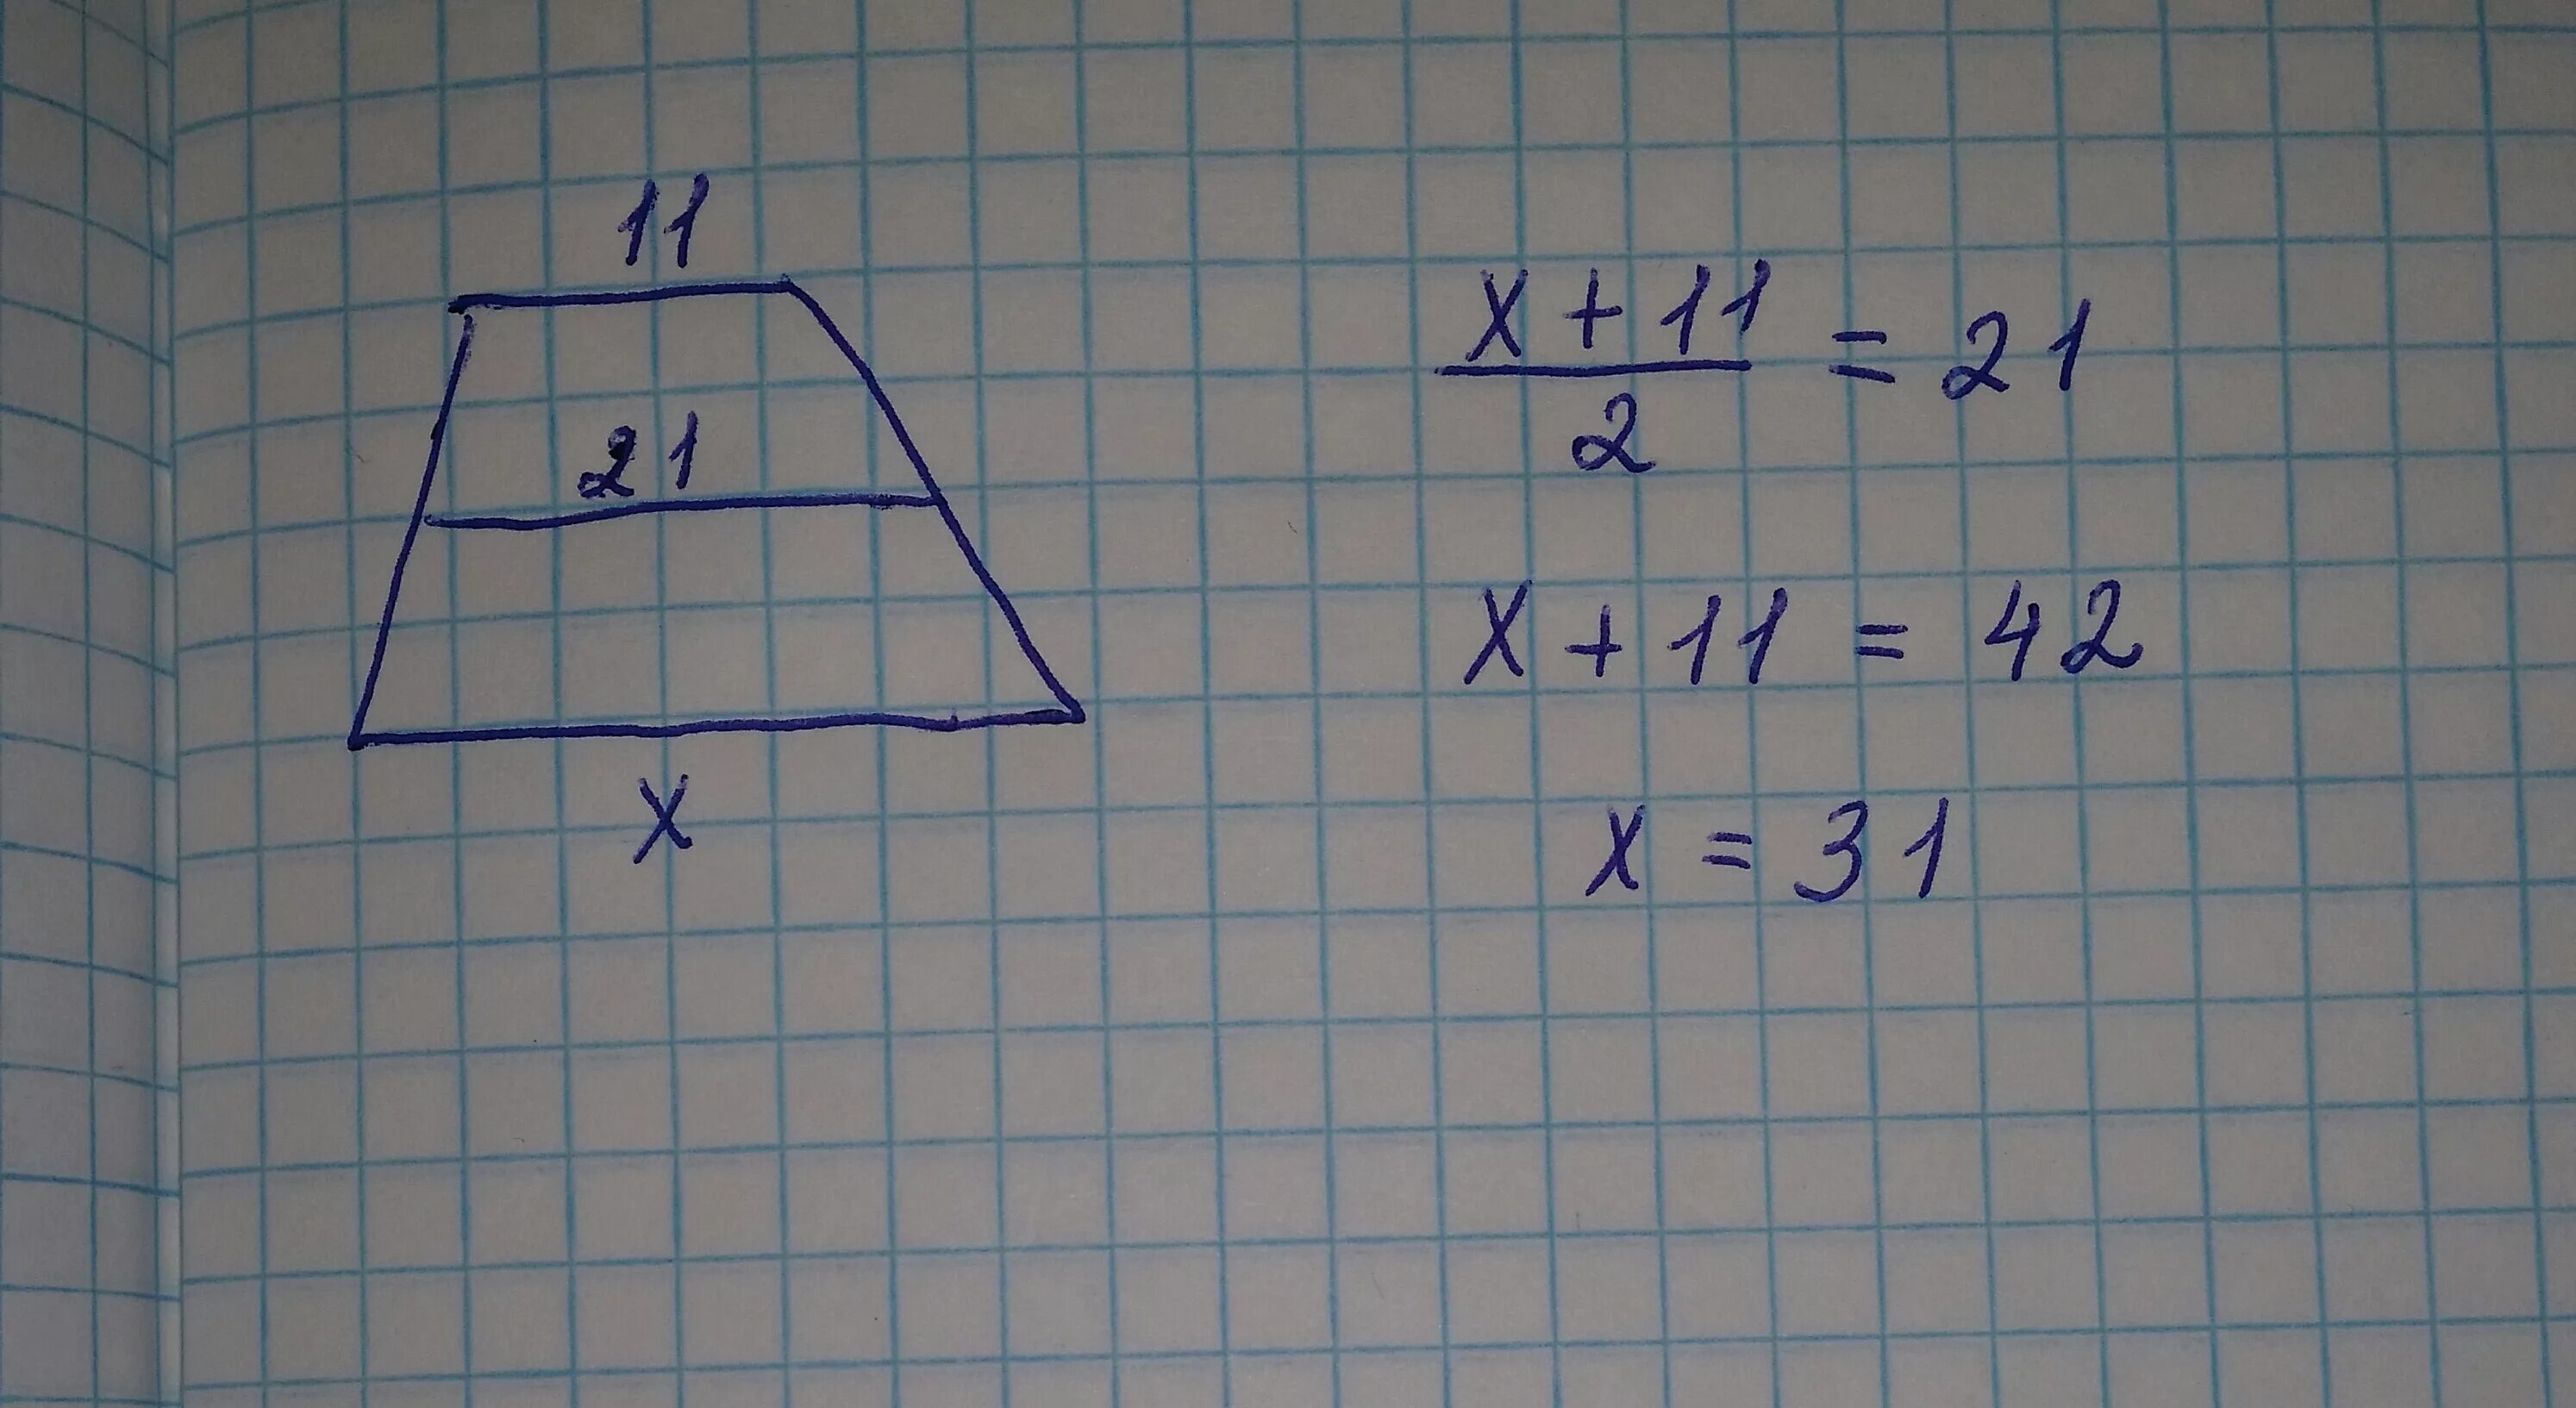 11
21
x
x + 11
2
= 21
x + 11 = 42
x = 31